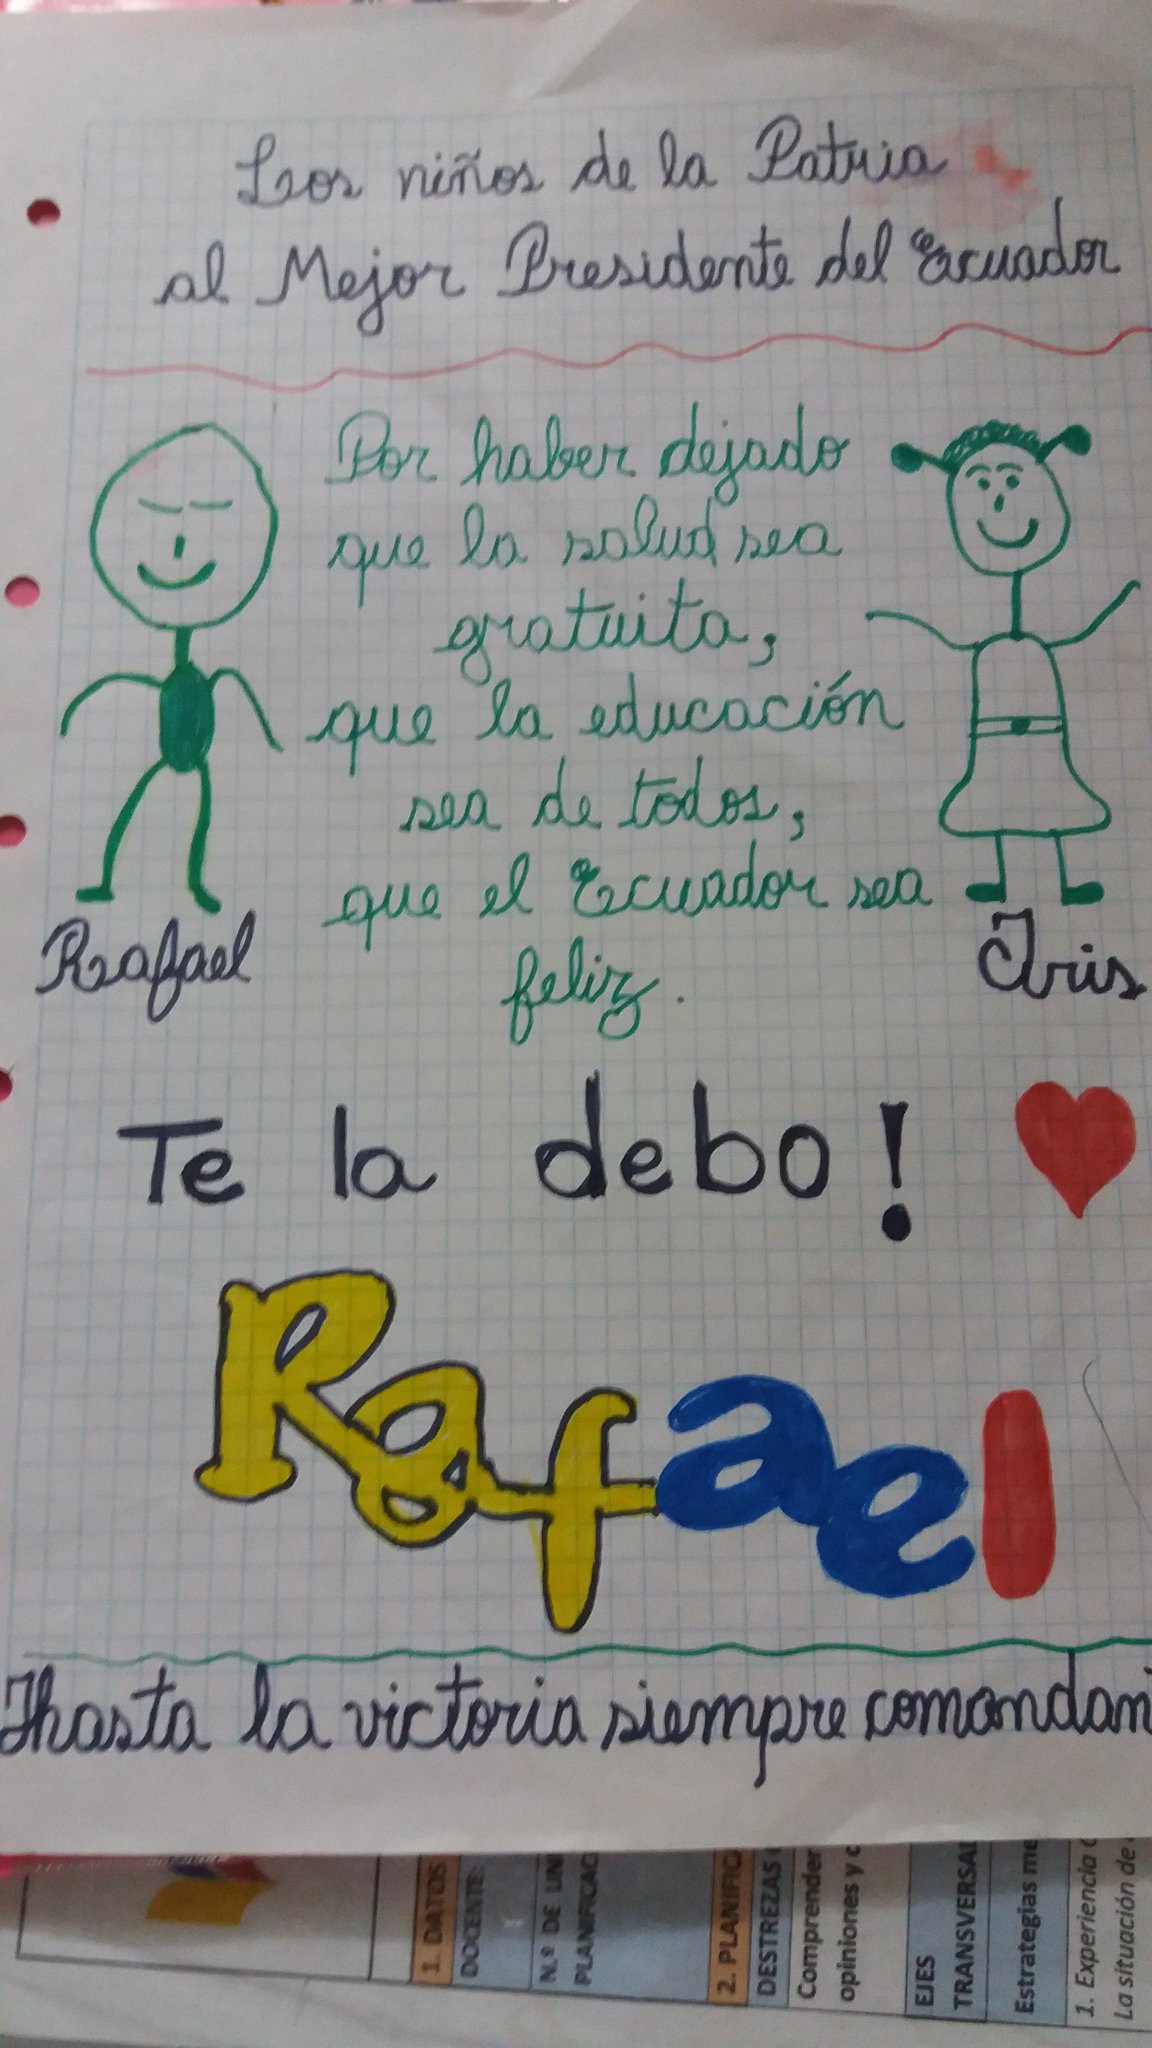 Los niños de la Patria
al Mejor Presidente del Ecuador
Por haber dejado
que la salud sea
gratuita,
que la educación
sea de todos,
que el Ecuador sea
feliz.
Rafael
Iris
Te la debo!
Rafael
Hasta la victoria siempre comandan
1. DATOS
DOCENTE:
N.º DE UNI
PLANIFICAC
2. PLANIFIC
DESTREZAS
Comprender
opiniones y
EJES
TRANSVERSAL
Estrategias me
1. Experiencia
La situación de